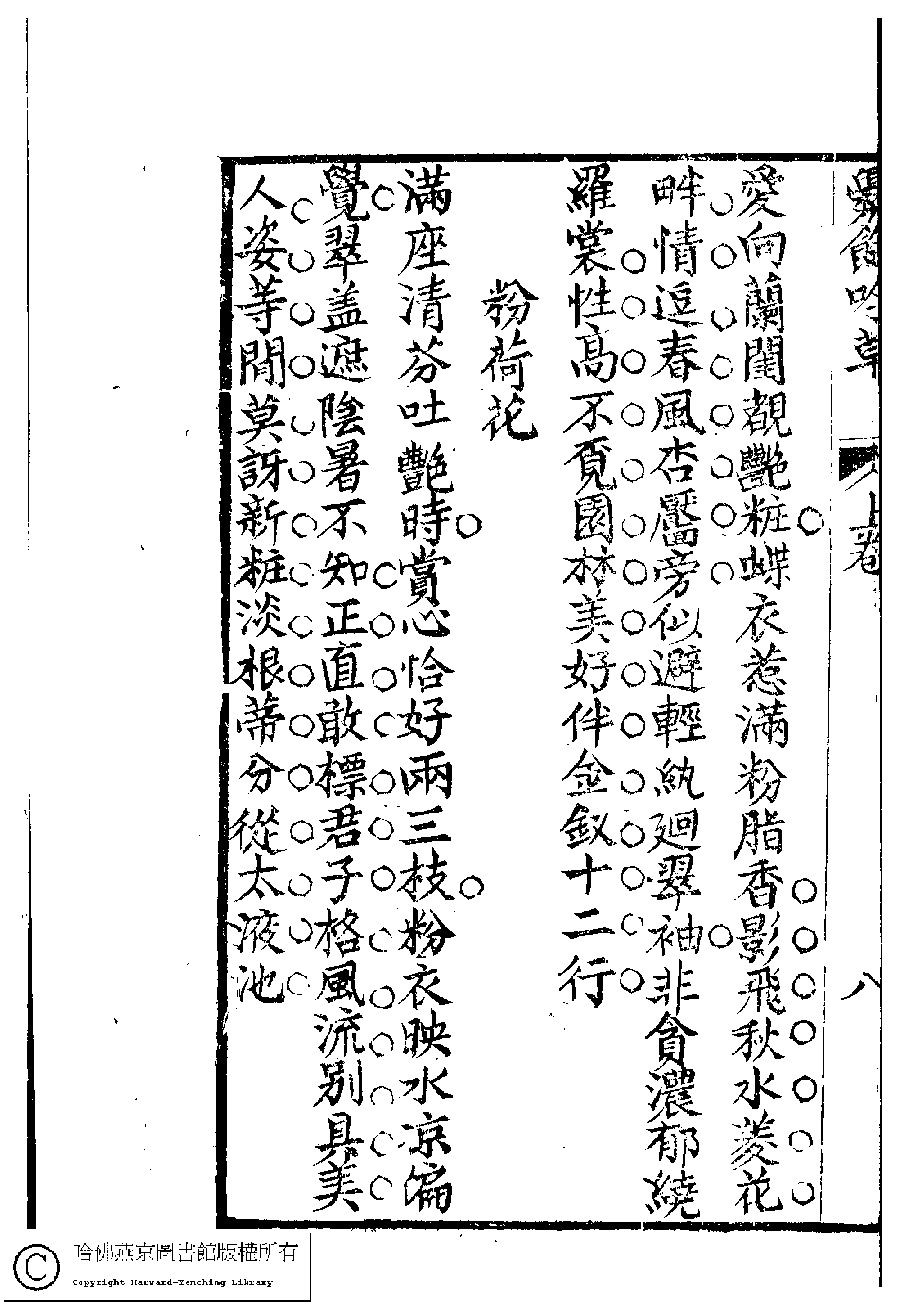 爨餘吟草 上卷 八
愛向蘭閨覩艷粧蝶衣惹滿粉脂香影飛秋水菱花
畔情逗春風杏靨旁似避輕紈廻翠袖非貪濃郁繞
羅裳性高不覓園林美好伴金釵十二行
粉荷花
滿座清芬吐艷時賞心恰好兩三枝粉衣映水凉偏
覺翠盖遮陰暑不知正直敢標君子格風流別具美
人姿等閒莫訝新粧淡根蒂分從太液池
哈佛燕京圖書館版權所有
Copyright Harvard-Yenching Library